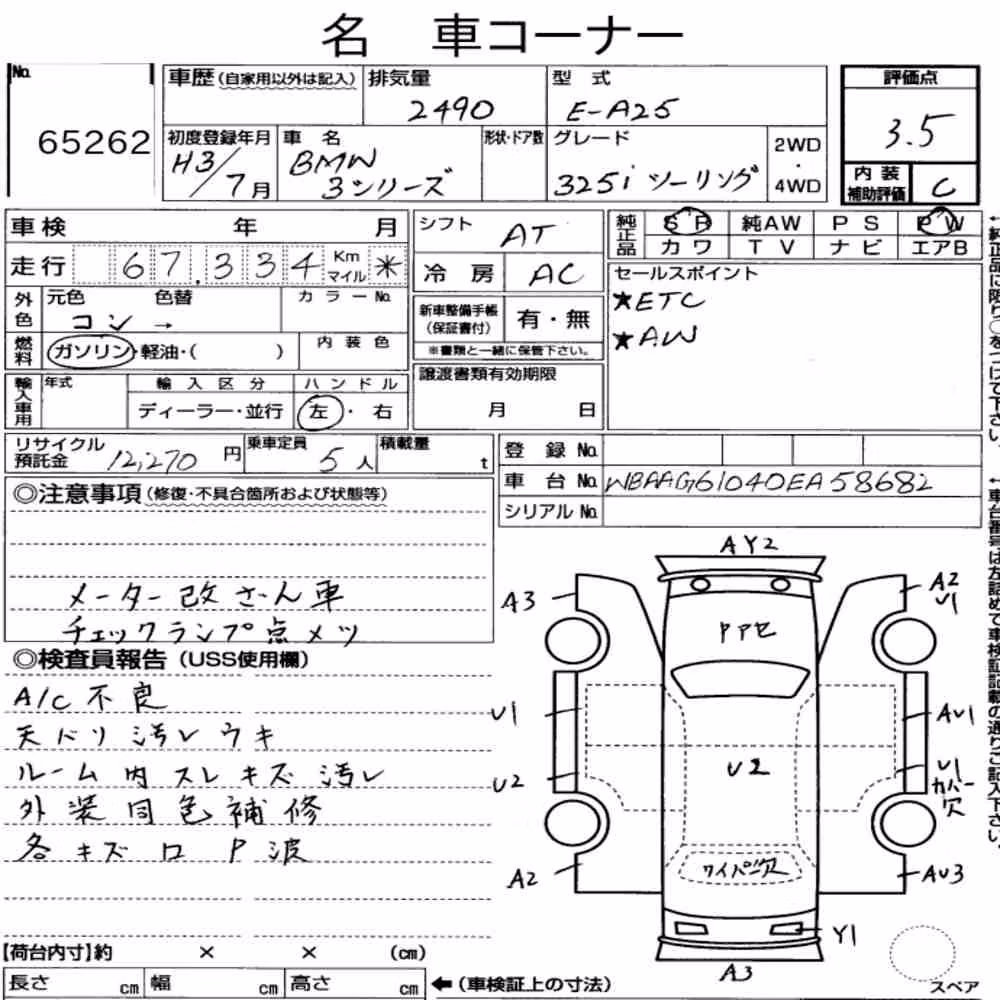 名 車コーナー
No.
65262
車歴(自家用以外は記入)
排気量
2490
型式
E-A25
評価点
3.5
初度登録年月
H3/7月
車名
BMW
3シリーズ
形状・ドア数
グレード
325i ツーリング
2WD
・
4WD
内装
補助評価
C
車検 年 月
走行 67,334 Km マイル *
外色
元色 色替 カラーNo.
コン →
燃料
ガソリン・軽油・( )
内装色
輸入車用
年式
輸入区分
ディーラー・並行
ハンドル
左・右
シフト
AT
冷房
AC
新車整備手帳
(保証書付)
有・無
※書類と一緒に保管下さい。
譲渡書類有効期限
月 日
純正品
SR 純AW PS PW
カワ TV ナビ エアB
セールスポイント
★ETC
★AW
←純正品に限り○をつけて下さい。
リサイクル
預託金
12,270円
乗車定員
5人
積載量
t
登録No.
車台No. WBAAG61040EA58682
シリアルNo.
←車台番号は左詰めで車検証記載の通りご記入下さい。
◎注意事項(修復・不具合箇所および状態等)
メーター改ざん車
チェックランプ点メツ
◎検査員報告(USS使用欄)
A/C不良
天バリ汚レウキ
ルーム内スレキズ汚レ
外装同色補修
各キズロP波
AY2
A3
A2
U1
Pアセ
U1
AU1
U2
U2
U1
カバー
欠
ワイパー欠
A2
AU3
Y1
A3
スペア
【荷台内寸】約 × × (cm)
長さ cm 幅 cm 高さ cm ←(車検証上の寸法)